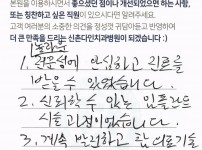 본원을 이용하시면서 좋으셨던 점이나 개선되었으면 하는 사항,
또는 칭찬하고 싶은 직원이 있으시다면 알려주세요.
고객 여러분의 소중한 의견을 정성껏 귀담아듣고 반영하여
더 큰 만족을 드리는 신촌다인치과병원이 되겠습니다 :)
1. 전문성에 안심하고 진료를
받을 수 있었습니다.
2. 신뢰할 수 있는 임플란트
시술 되었습니다.
3. 계속 발전하고 참 의료기술